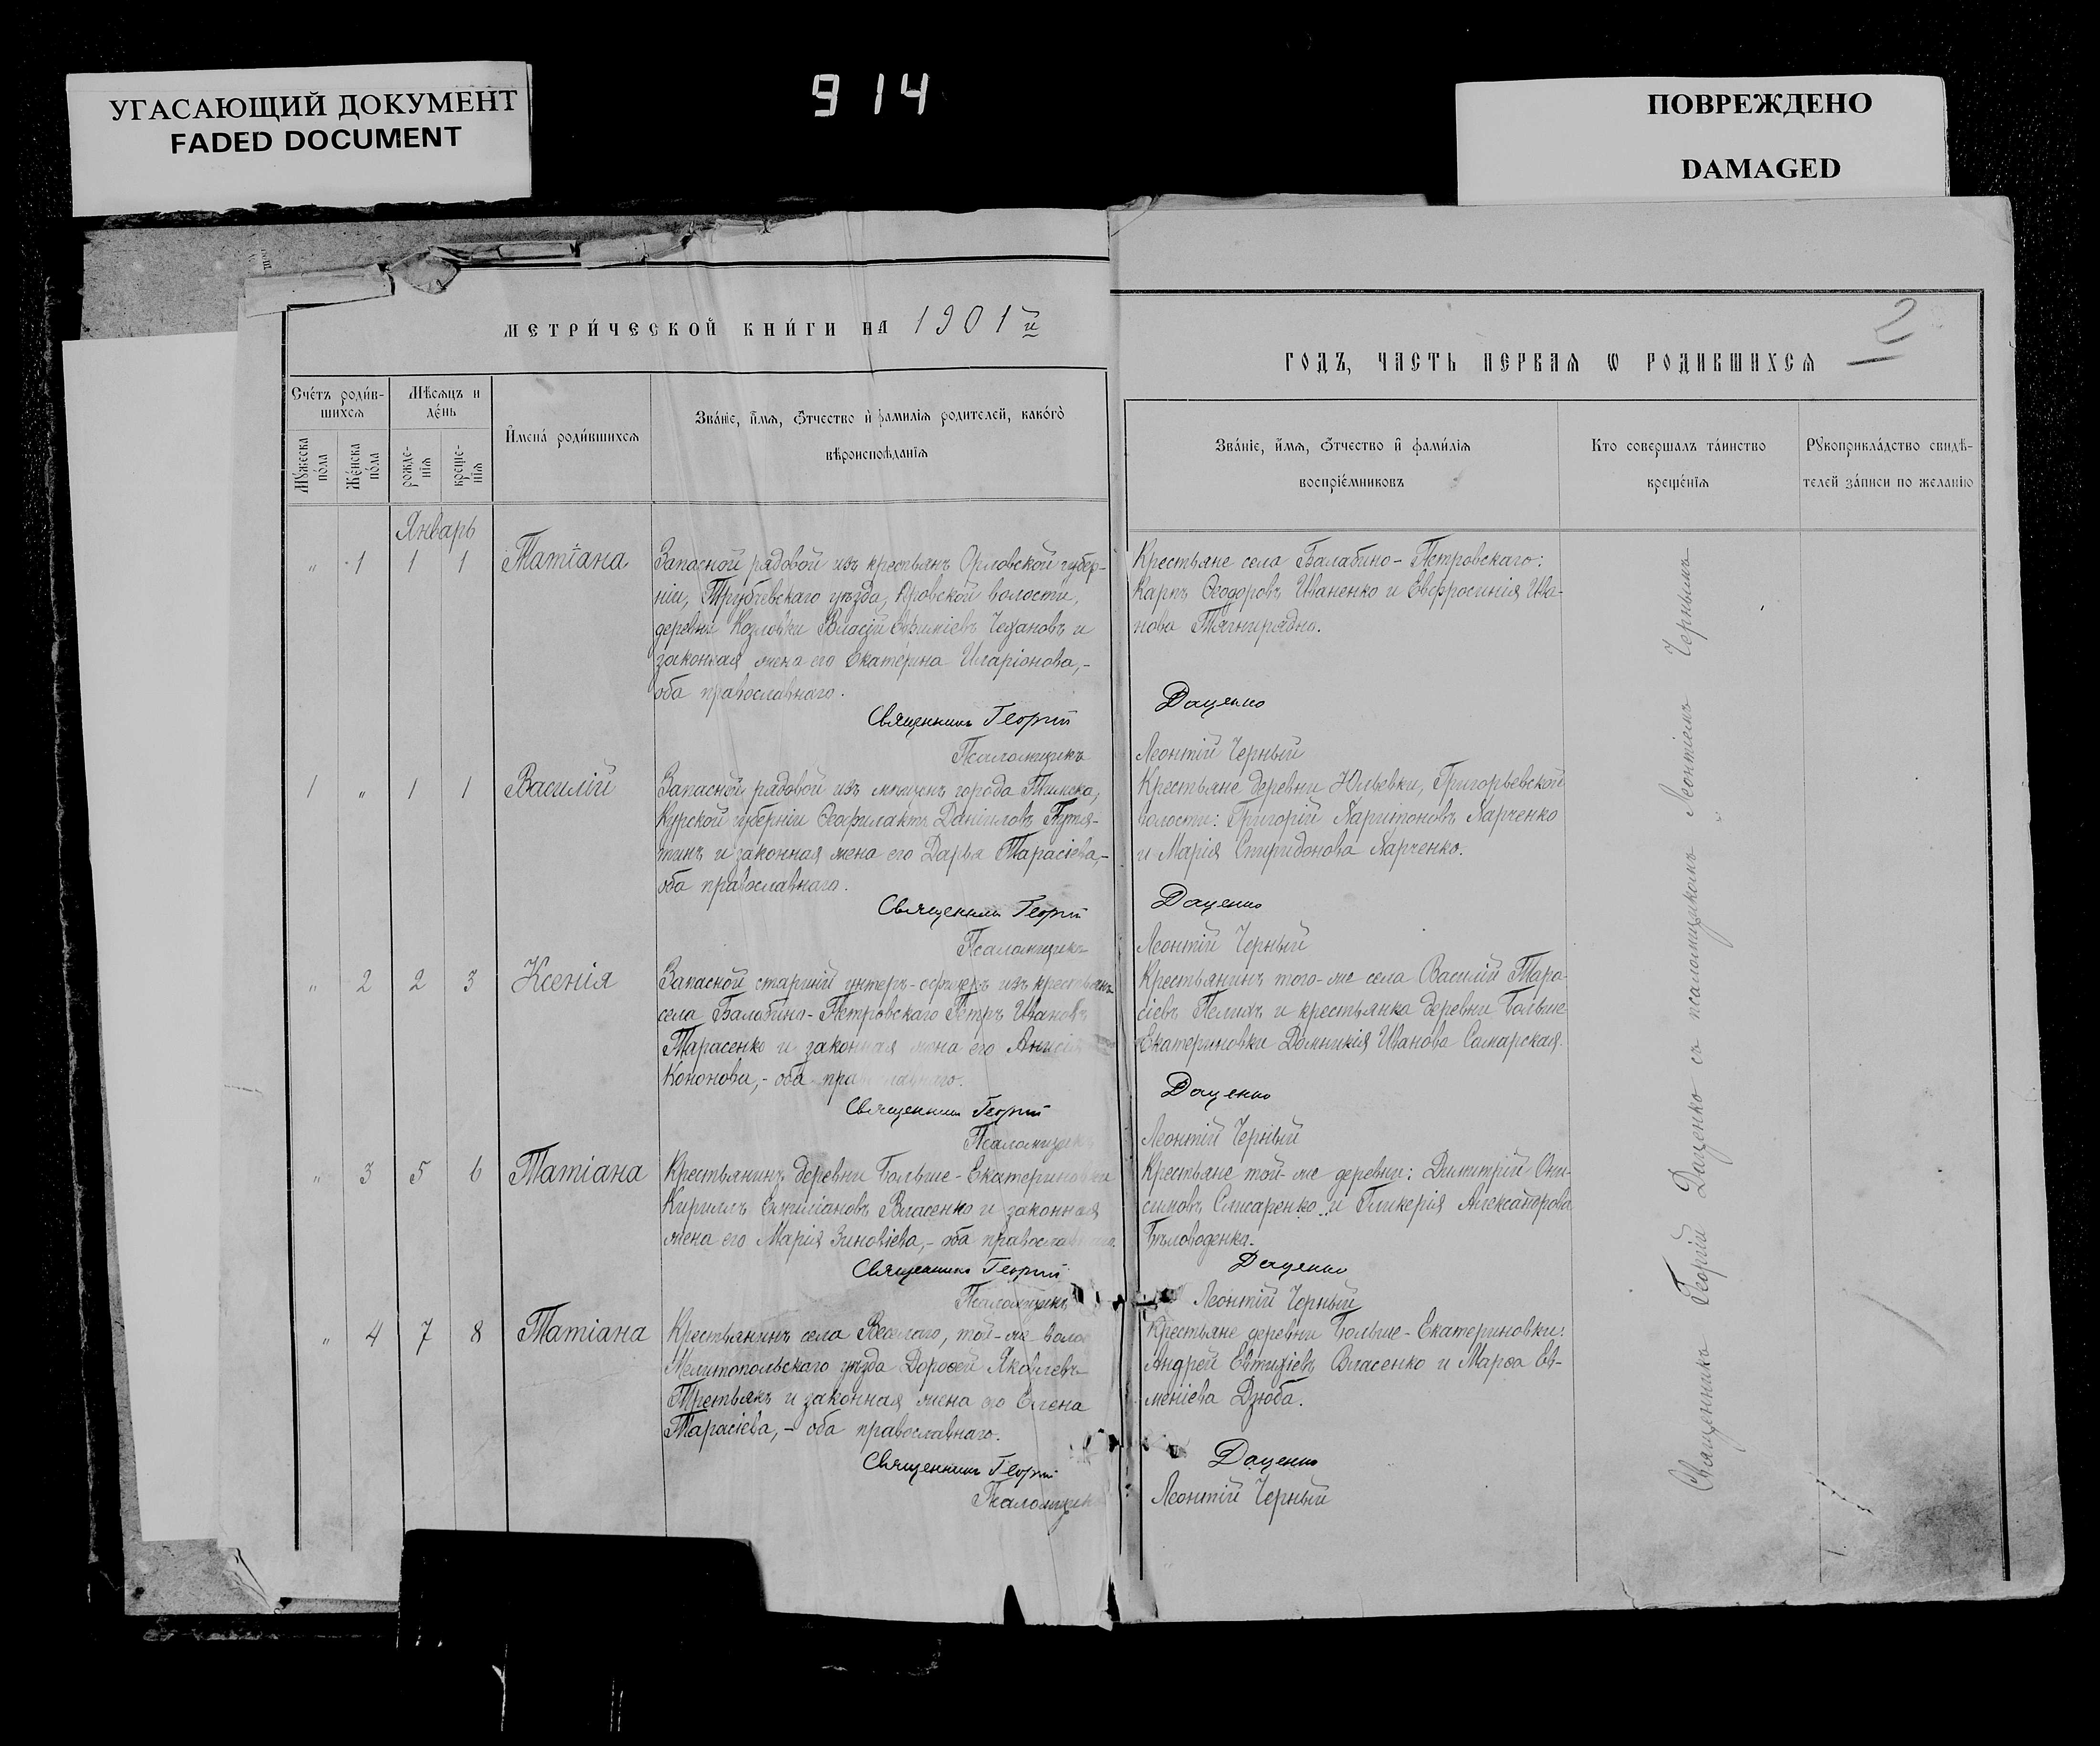 УГАСАЮЩИЙ ДОКУМЕНТ
FADED DOCUMENT
914
ПОВРЕЖДЕНО
DAMAGED
МЕТРИ́ЧЕСКОЙ КНИ́ГИ НА 1901й
ГОДЪ, ЧАСТЬ ПЕРВАЯ Ѡ РОДИВШИХСЯ
2
Сче́тъ роди́в-
шихся
Мѣсяцъ и
де́нь
И҆мена́ роди́вшихся
Зва́нїе, и҆́мя, ѻ҆́тчество и҆ фамилїя родителей, како́гѡ
вѣроисповѣданїя
Мꙋ́жеска
по́ла
Же́нска
по́ла
рожде-
нїя
креще-
нїя
Зва́нїе, и҆́мя, ѻ҆́тчество и҆ фами́лїя
воспрїе́мниковъ
Кто совершалъ та́инство
креще́нїя
Рꙋкоприкла́дство свидѣ-
телей за́писи по желанїю
Январь
" 1 1 1 Татіана
Запасной рядовой изъ крестьянъ Орловской губер-
ніи, Трубчевскаго уѣзда, волости,
деревни Козловки Власій Ефиміевъ Чехановъ и
законная жена его Екатерина Иларіонова,-
оба православнаго.
Священникъ Георгій
Псаломщикъ
Крестьяне села Балабино-Петровскаго:
Карпъ Ѳеодоровъ Иваненко и Евфросинія Ива-
нова Тягнирядно.
Даценко
Леонтій Черный
1 " 1 1 Василій
Запасной рядовой изъ мѣщанъ города Тима,
Курской губерніи Ѳеофилактъ Даніиловъ Путя-
тинъ и законная жена его Дарья Тарасіева,-
оба православнаго.
Священникъ Георгій
Псаломщикъ
Крестьяне деревни Юльевки, Григорьевской
волости: Григорій Харитоновъ Харченко
и Марія Спиридонова Харченко.
Даценко
Леонтій Черный
" 2 2 3 Ксенія
Запасной старшій унтеръ-офицеръ изъ крестьянъ
села Балабино-Петровскаго Петръ Ивановъ
Тарасенко и законная жена его Анисія
Кононова,- оба православнаго.
Священникъ Георгій
Псаломщикъ
Крестьянинъ того-же села Василій Тара-
сіевъ Пелихъ и крестьянка деревни Больше-
Екатериновки Домникія Иванова Самарская.
Даценко
Леонтій Черный
" 3 5 6 Татіана
Крестьянинъ деревни Больше-Екатериновки
Кириллъ Емиліановъ Власенко и законная
жена его Марія Зиновіева,- оба православнаго.
Священникъ Георгій
Псаломщикъ
Крестьяне той-же деревни: Димитрій Они-
симовъ Слисаренко и Гликерія Александрова
Бѣловоденка.
Даценко
Леонтій Черный
" 4 7 8 Татіана
Крестьянинъ села Веселаго, той-же воло
Мелитопольскаго уѣзда Дороѳей Яковлевъ
Третьякъ и законная жена его Елена
Тарасіева,- оба православнаго.
Священникъ Георгій
Псаломщикъ
Крестьяне деревни Больше-Екатериновки:
Андрей Евтихіевъ Власенко и Марѳа Ев-
меніева Дзюба.
Даценко
Леонтій Черный
Священникъ Георгій Даценко съ псаломщикомъ Леонтіемъ Чернымъ